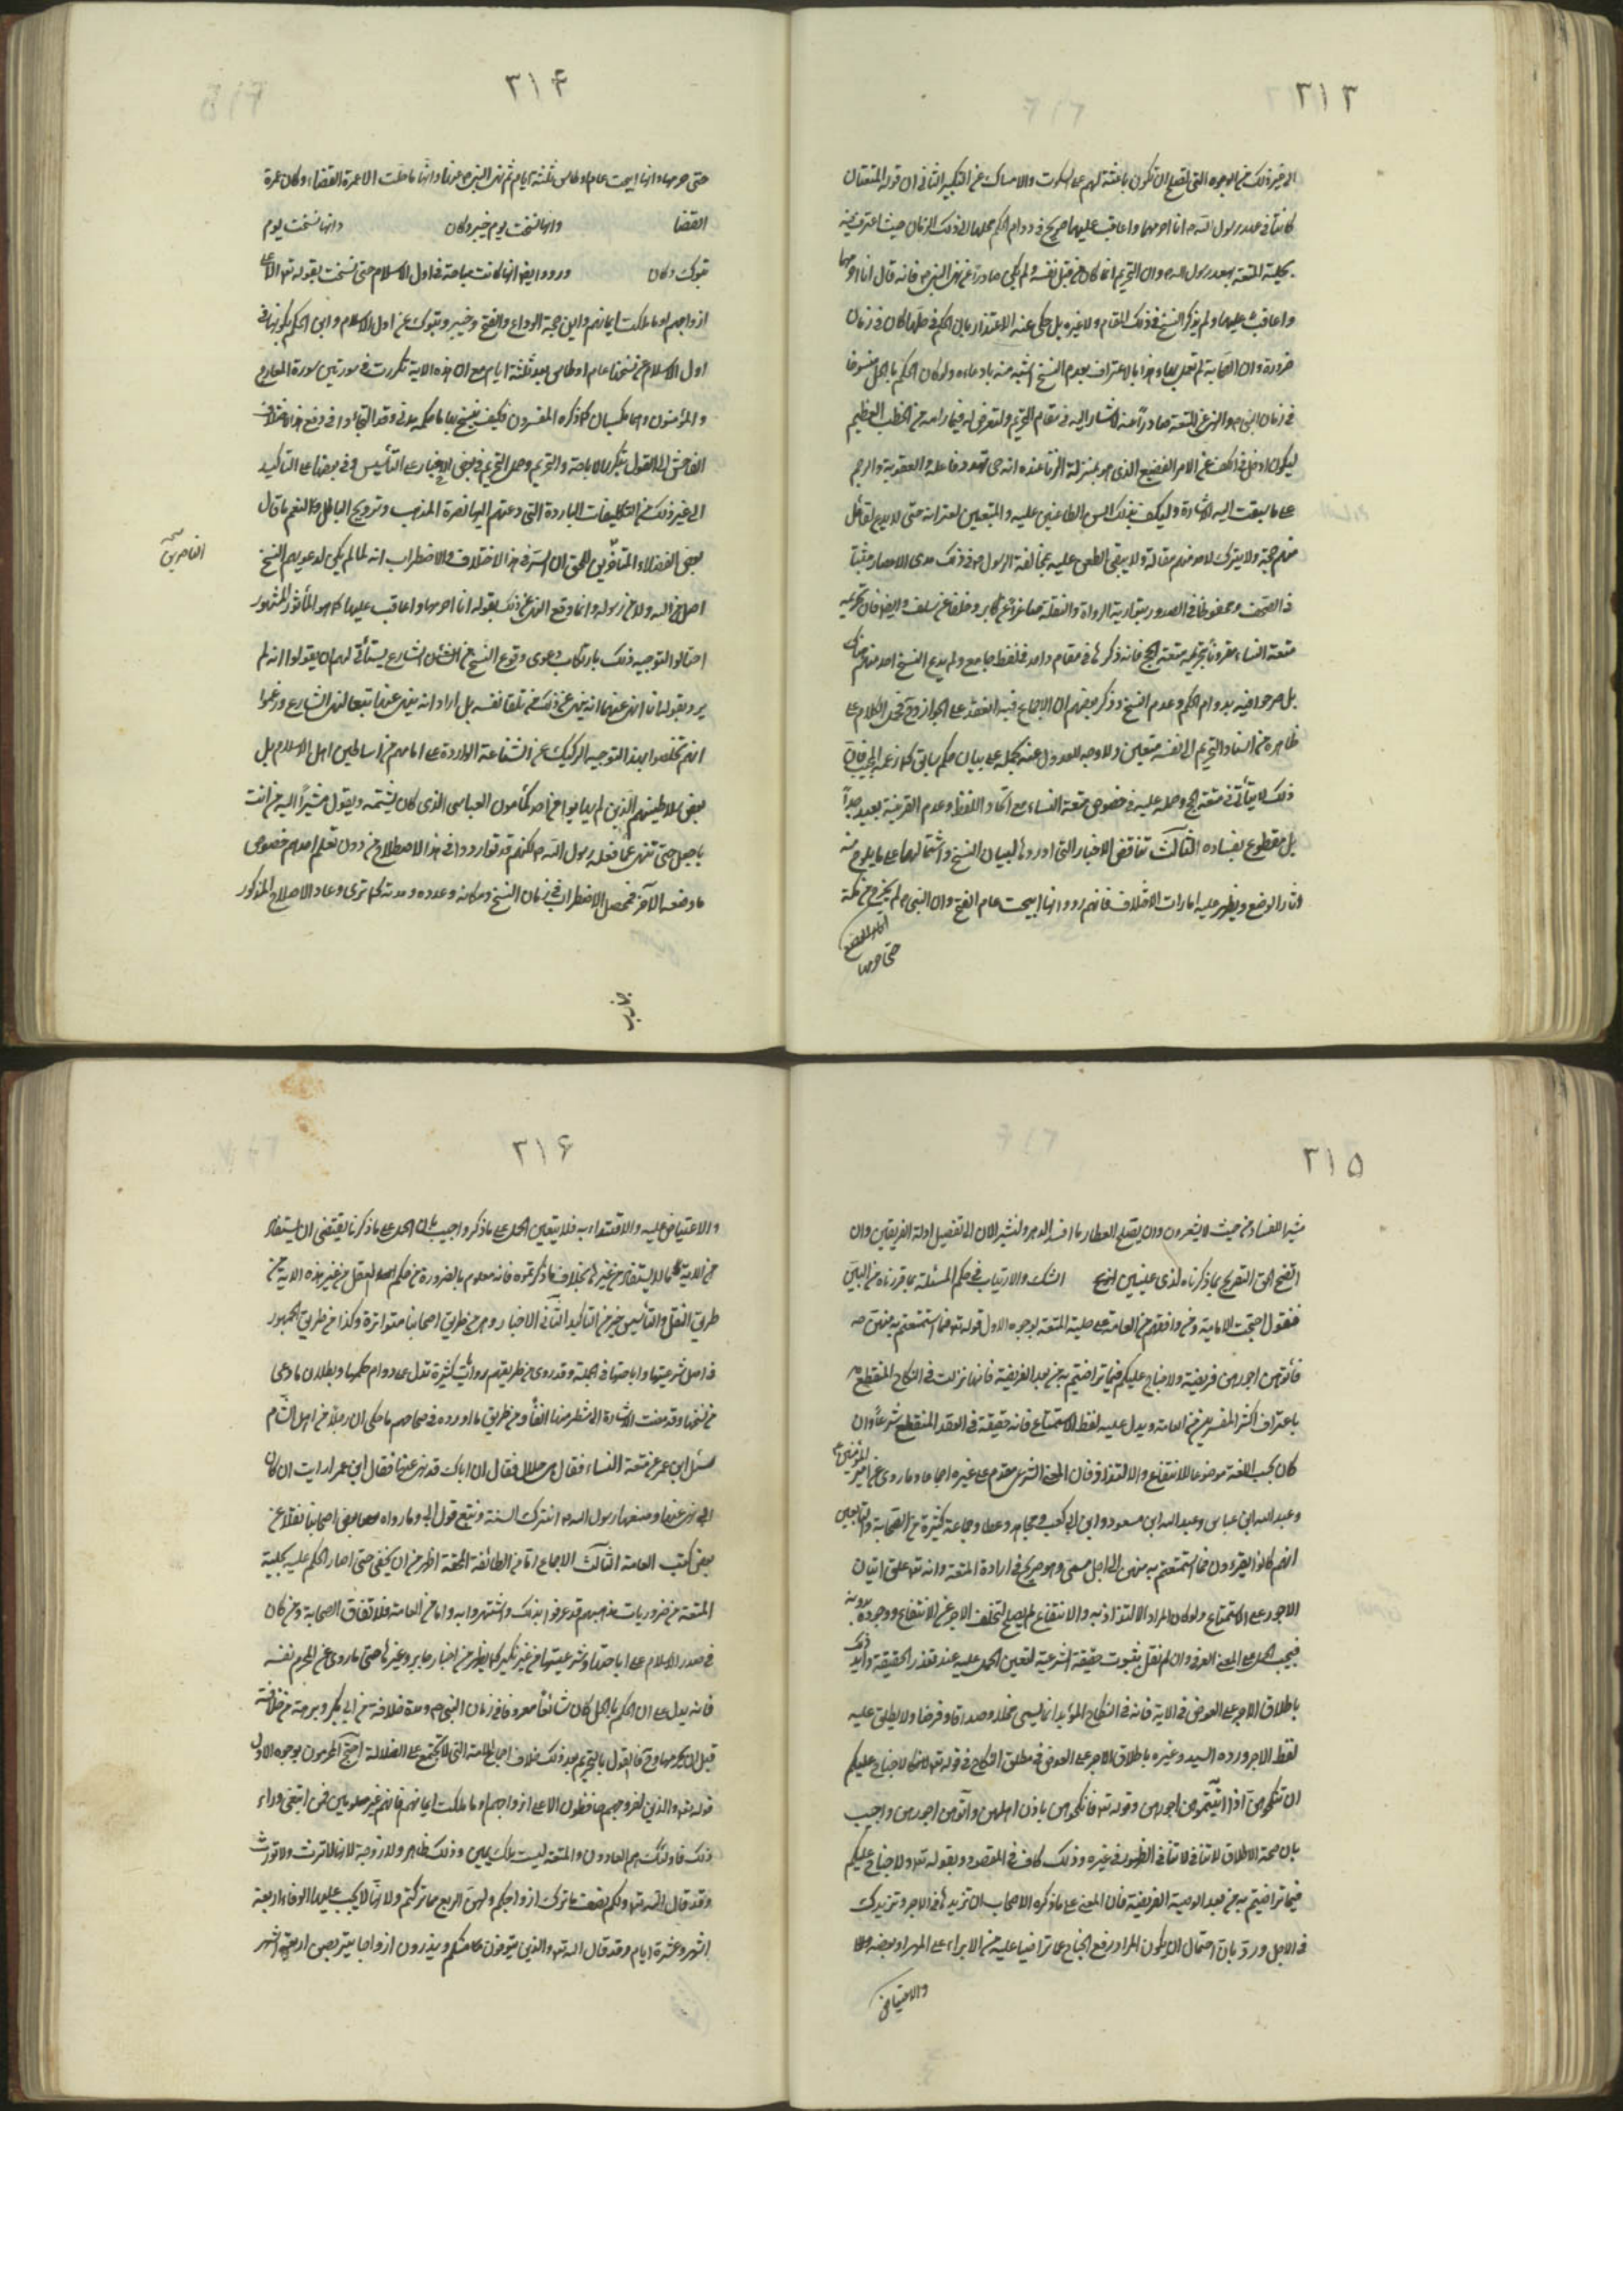 ٣١٣
الى غير ذلك من الوجوه التى تصلح ان تكون باعثة لهم على السكوت والامساك عن النكير الثانى ان قوله المتعتان
كانتا فى عهد رسول الله ص انا احرمهما واعاقب عليهما صريح فى دوام الحكم بحلها الى ذلك الزمان حيث اعترف فيه
بحلية المتعة بعهد رسول الله ص وان التحريم انما كان من قبل نفسه ولم يكن صادرا عن نهى النبى ص فانه قال انا احرمهما
واعاقب عليهما ولم يذكر النسخ فى ذلك المقام ولا غيره بل حكى عنه الاعتذار بان الحكم فى حلها كان فى زمان
ضرورة وان الصحابة لم تعمل بها وهذا بالاعتراف بعدم النسخ اشبه منه بادعاءه ولو كان الحكم بالحل منسوخا
فى زمان النبى ص والنهى عن المتعة صادرا عنه لاشار اليه فى مقام التحريم ولتعرض له فيما رامه من الخطب العظيم
ليكون ادخل فى الكف عن الامر الفضيع الذى هو بمنزلة الزنا عنده انه حتى تهدد فاعله والعقوبة والرجم
على ما سبقت اليه الاشارة وليكف بذلك السن الطاعنين عليه والمتبعين لعثراته حتى لا يدع لقائل
منهم حجة ولا يترك لاحد منهم مقالة ولا يبقى الطعن عليه بمخالفة الرسول ص فى ذلك مدى الاعصار مثبتا
فى الصحف ومحفوظا فى الصدور يتوارثه الرواة والنقلة صاغرا عن كابر وخلفا عن سلف وايضا فان تحريمه
متعة النساء مقرونا بتحريمه متعة الحج فانه ذكرهما فى مقام واحد بلفظ جامع ولم يدع النسخ احد منهم هناك
بل صرحوا فيه بدوام الحكم وعدم النسخ وذكر بعضهم ان الاجماع فيه انعقد على الجواز وح فحمل الكلام على
ظاهره من اسناد التحريم الى نفسه متعين ولا وجه للعدول عنه بحمله على بيان حكم سابق كما زعمه المجيب فان
ذلك لا يتأتى فى متعة الحج وحمله عليه فى خصوص متعة النساء مع اتحاد اللفظ وعدم القرينة بعيد جداً
بل مقطوع بفساده الثالث تناقض الاخبار التى اوردها لبيان النسخ واشتمالها على ما يلوح منه
اثار الوضع ويظهر عليه امارات الاختلاف فانهم رووا انها ابيحت عام الفتح وان النبى ص لم يخرج من مكة
اثار الوضع
حتى حرمها
٣١۴
حتى حرمها وانها ابيحت عام اوطاس ثلثة ايام ثم نهى النبى ص عنها وانها ما حلت الا عمرة القضاء وكان عمرة
القضا وانها نسخت يوم خيبر وكان وانها نسخت يوم
تبوك وكان ورووا ايضا انها كانت مباحة فى اول الاسلام حتى نسخت بقوله تعالى الا على
ازواجهم او ما ملكت ايمانهم واين حجة الوداع والفتح وخيبر وتبوك عن اول الاسلام واين الحكم بكونها فى
اول الاسلام عن نسخها عام اوطاس بعد ثلثة ايام مع ان هذه الاية تكررت فى سورتين سورة المعارج
والمؤمنون وهما مكيتان كما ذكره المفسرون فكيف ينسخ بها ما حكمه مدنى وقد التجاؤا فى دفع هذا الاختلاف
الفاحش الى القول بتكرر الاباحة والتحريم وحمل التحريم فى بعض الاخبار على التأسيس وفى بعضها على التاكيد
الى غير ذلك من التكليفات الباردة التى دعتهم اليها نصرة المذهب وترويج الباطل ولنعم ما قال
بعض الفضلاء المتاخرين للحق ان السر فى هذا الاختلاف والاضطراب انه لما لم يكن لدعويهم النسخ
الناصرين صح
اصل من الله ولا من رسوله وانما وقع النهى عن ذلك بقوله انا احرمهما واعاقب عليهما كما هو المأثور المشهور
احتالوا لتوجيه ذلك بارتكاب دعوى وقوع النسخ من الشارع ليتأتى لهم ان يقولوا انه لم
يرد بقوله انا انهى عنهما انه ينهى عن ذلك من تلقاء نفسه بل اراد انه ينهى عنها تبعا لنهى الشارع وزعموا
انهم تخلصوا بهذا التوجيه الركيك عن الشناعة الواردة على امامهم من اساطين اهل الاسلام بل
بعض سلاطينهم الذين لم يهابوا من احد كمأمون العباسى الذى كان يشتمه ويقول مشيراً اليه من انت
يا جعل حتى تنهى عما فعله رسول الله ص لكنهم قد تواردوا فى هذا الاصطلاح من دون تعلم احدهم خصوص
ما وضعه الآخر فحصل الاضطراب فى زمان النسخ ومكانه وعدده ومدته كما ترى وعاد الاصلاح المذكور
٣١۵
مثيرا للفساد من حيث لا يشعرون وان يصلح العطار ما افسد الدهر ولنشر الان الى تفصيل ادلة الفريقين وان
اتضح الحق الصريح بما ذكرناه لذى عينين الشك والارتياب فى حكم المسئلة بما قررناه من البين
فنقول احتجت الامامية ومن وافقهم من العامة على حلية المتعة بوجوه الاول قوله تعالى فما استمتعتم به منهن
فآتوهن اجورهن فريضة ولا جناح عليكم فيما تراضيتم به من بعد الفريضة فانها نزلت فى النكاح المنقطع
باعتراف اكثر المفسرين من العامة ويدل عليه لفظ الاستمتاع فانه حقيقة فى العقد المنقطع شرعاً وان
كان بحسب اللغة موضوعا للانتفاع والالتذاذ فان المعنى الشرعى مقدم على غيره اجماعا وما روى عن امير المؤمنين ع
وعبد الله ابن عباس وعبد الله ابن مسعود وابى ابن كعب ومجاهد وعطا وجماعة كثيرة من الصحابة والتابعين
انهم كانوا يقرءون فما استمتعتم به منهن الى اجل مسمى وهو صريح فى ارادة المتعة وانه تعالى علق ايتان
الاجور على الاستمتاع ولو كان المراد الالتذاذ به والانتفاع لم يصلح لتخلف الاجر عن الانتفاع ووجوده بدونه
فيجب الحمل على المعنى العرفى وان لم نقل بثبوت حقيقة الشرعية لتعين الحمل عليه عند تعذر الحقيقة وايد ذلك
باطلاق الاجر على العوض فى الاية فانه فى النكاح المؤبد انما يسمى مهرا وصداقا وفرضا ولا يطلق عليه
لفظ الاجر ورده السيد وغيره باطلاق الاجر على العوض فى مطلق النكاح فى قوله تعالى لا جناح عليكم
ان تنكحوهن اذا اتيتموهن اجورهن وقوله تعالى فانكحوهن باذن اهلهن واتوهن اجورهن واجيب
بان صحة الاطلاق لا تنافى الظهور فى غيره وذلك كاف فى المقصود وبقوله تعالى ولا جناح عليكم
فيما تراضيتم به من بعد الفريضة فان المعنى على ما ذكره الاصحاب ان تزيدها فى الاجر وتزيدك
فى الاجل ورد بان احتمال ان يكون المراد رفع الجناح عما تراضيا عليه من الابراء على المهر او بعضه
والاعتياض
٣١۶
والاعتياض عليه والاقتداء به فلا يتعين الحمل على ما ذكر واجيب بان الحمل على ما ذكرنا يقتضى ان يستفاد
من الاية ما لا يستفاد من غيرها بخلاف ما ذكرتموه فانه معلوم بالضرورة من حكم العقل من غير هذه الاية من
طريق النقل والتأسيس خير من التاكيد الثانى الاخبار وهى من طريق اصحابنا متواترة وكذا من طريق الجمهور
فى اصل شرعيتها واباحتها فى الجملة وقد روى من طريقهم روايات كثيرة تدل على دوام حكمها وبطلان ما ادعى
من نسخها وقد مضت الاشارة الى شطر منها انفا ومن طريق ما اورده فى صحاحهم ما حكى ان رجلاً من اهل الشام
سئل ابن عمر عن متعة النساء فقال هى حلال فقال ان اباك قد نهى عنها فقال ابن عمر ارايت ان كان
ابى نهى عنها وصنعها رسول الله ص انترك السنة ونتبع قول ابى وما رواه بعض اصحابنا نقلا عن
بعض كتب العامة الثالث الاجماع اما من الطائفة المحقة اظهر من ان يخفى حتى صار الحكم عليه بحلية
المتعة من ضروريات مذهبهم قد عرفوا بذلك واشتهروا به واما من العامة فلاتفاق الصحابة ومن كان
فى صدر الاسلام على اباحتها وشرعيتها من غير نكير كما يظهر من اخبار جابر وغيرها حتى ما روى عن المحرم نفسه
فانه يدل على ان الحكم بالحل كان شائعا معروفا فى زمان النبى ص ومدة خلافة من ابى بكر وبرهة من خلافته
قبل ان يحرمها وح فالقول بالتحريم بعد ذلك خلاف اجماع الامة التى لا تجتمع على الضلالة احتج المحرمون بوجوه الاول
قوله تعالى والذين لفروجهم حافظون الا على ازواجهم او ما ملكت ايمانهم فانهم غير ملومين فمن ابتغى وراء
ذلك فاولئك هم العادون والمتعة ليست بملك يمين وذلك ظاهر ولا زوجة لانها لا ترث ولا تورث
وقد قال الله تعالى ولكم نصف ما ترك ازواجكم ولهن الربع مما تركتم ولانها لا يجب عليها الوفاء اربعة
اشهر وعشرة ايام وقد قال الله تعالى والذين يتوفون منكم ويذرون ازواجا يتربصن اربعة اشهر